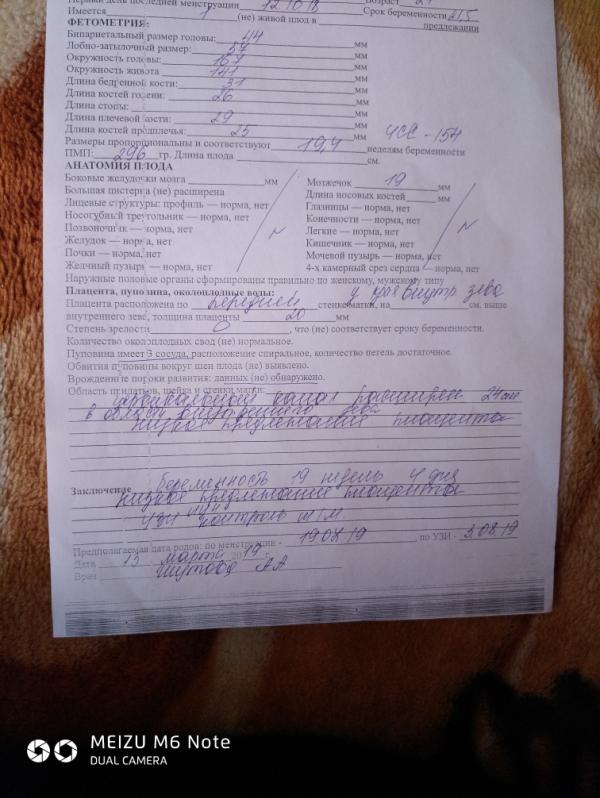 Первый день последней менструации 12.10.18 Возраст
Имеется 1 (не) живой плод в предлежании Срок беременности 21,5
ФЕТОМЕТРИЯ:
Бипариетальный размер головы: 44 мм
Лобно-затылочный размер: 57 мм
Окружность головы: 167 мм
Окружность живота 141 мм
Длина бедренной кости: 31 мм
Длина костей голени: 26 мм
Длина стопы: мм
Длина плечевой кости: 29 мм
Длина костей предплечья: 25 мм ЧСС - 154
Размеры пропорциональны и соответствуют 19,4 неделям беременности
ПМП: 296 гр. Длина плода см.
АНАТОМИЯ ПЛОДА
Боковые желудочки мозга мм Мозжечок 19 мм
Большая цистерна (не) расширена Длина носовых костей мм
Лицевые структуры: профиль — норма, нет Глазницы — норма, нет
Носогубный треугольник — норма, нет Конечности — норма, нет
Позвоночник — норма, нет N Легкие — норма, нет N
Желудок — норма, нет Кишечник — норма, нет
Почки — норма, нет Мочевой пузырь — норма, нет
Желчный пузырь — норма, нет 4-х камерный срез сердца — норма, нет
Наружные половые органы сформированы правильно по женскому, мужскому типу
Плацента, пуповина, околоплодные воды: у края внутр зева
Плацента расположена по передней стенке матки, на см. выше
внутреннего зева, толщина плаценты 20 мм
Степень зрелости 0, что (не) соответствует сроку беременности.
Количество околоплодных свод (не) нормальное.
Пуповина имеет 3 сосуда, расположение спиральное, количество петель достаточное.
Обвития пуповины вокруг шеи плода (не) выявлено.
Врожденные пороки развития: данных (не) обнаружено.
Область придатков, шейка и стенки матки:
цервикальный канал расширен
в области внутреннего зева
низкое предлежание плаценты
Заключение беременность 19 недель 4 дня
низкое предлежание плаценты
ИЦН
УЗИ контроль
Предполагаемая дата родов: по менструации - 19.07.19 по УЗИ - 3.08.19
Дата 13 марта 2019 г.
Врач АА
MEIZU M6 Note
DUAL CAMERA